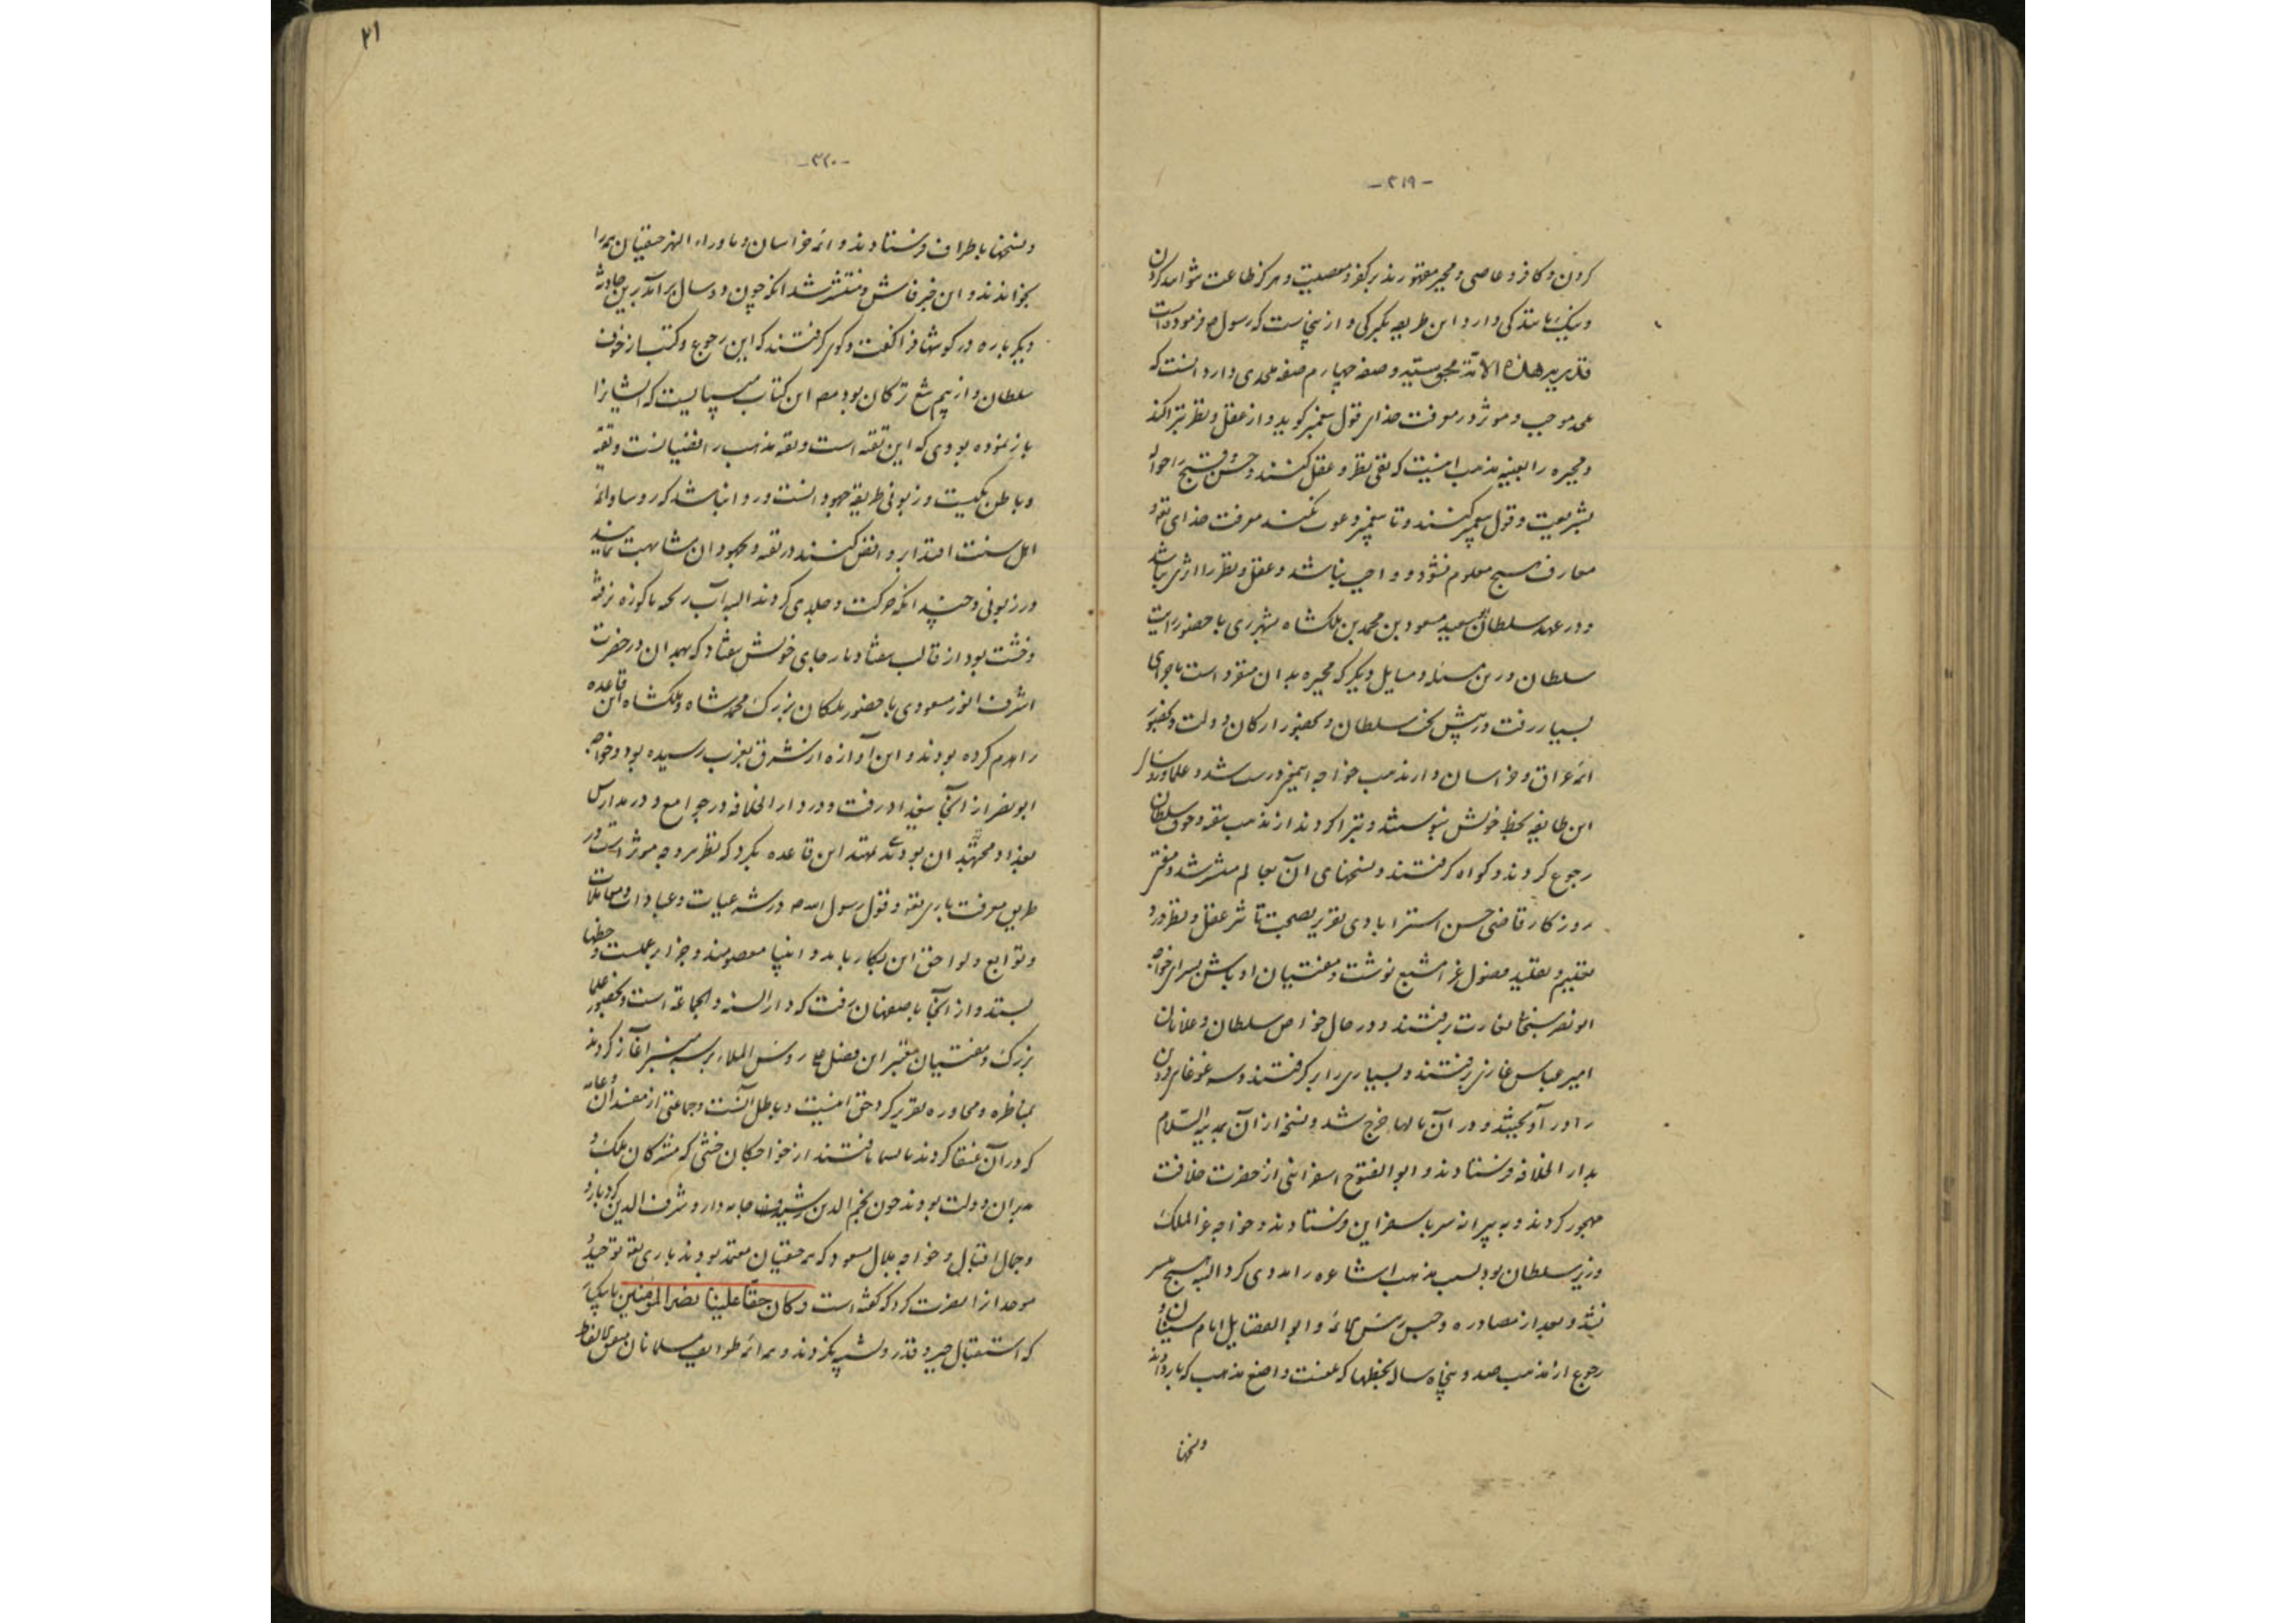 -۳۱۹-
کردن و کافر و عاصی و مجبر مقهورند بر کفر و معصیت و هرگز طاعت نتوانند کردن
و نیک مانندگی دارد این طریقه بگبرکی و ازینجاست که رسول ص فرموده است
قدریه هذه الامة مجوسیه و صفه چهارم صفه ملحدی دارد آنست که
ملحد موجب و موثر در معرفت خدای قول پیغمبر گوید و از عقل و نظر تبرا کند
و مجبره را بعینه مذهب اینست که نفی نظر و عقل کنند و حسن و قبیح را حواله
بشریعت و قول پیغمبر کنند و تا پیغمبر دعوت نکند معرفت خدای تعالی و
معارف هیچ معلوم نشود و واجب نباشد و عقل و نظر را اثری نباشد
و در عهد سلطان سعید مسعود بن محمد بن ملکشاه بشهر ری با حضور رایت
سلطان درین مسئله و مسایل دیگر که مجبره بدان متفرد است ماجرای
بسیار رفت در پیش تخت سلطان و بحضور ارکان دولت و بحضور
ائمه عراق و خراسان و از مذهب خواجه درست شد و علما و رؤسا
این طایفه بخط خویش بنوشتند و تبرا کردند از مذهب بتقیه و خوف سلطان
رجوع کردند و گواه گرفتند و نسخهای آن بعالم منتشر شد و مفخر
روزگار قاضی حسن استرابادی تقریر بصحبت تاثیر عقل و نظر و رد
تعلیم و تقلید فصول غرا مشبع نوشت و مفتیان اوباش بسرای خواجه
ابو نصر بغارت برفتند و در حال خواص سلطان و غلامان
امیر عباس غازی برفتند و بسیاری را برگرفتند و سه غوغای دزدان
را در آویختند و در آن مالها خرج شد و نسخه از آن بمدینه السلام
بدار الخلافه فرستادند و ابو الفتوح اسفراینی از حضرت خلافت
مهجور کردند و به پیرانه سر باسفراین فرستادند و خواجه عز الملک
وزیر سلطان بود بسبب مذهب اشاعره را مددی کرد البته هیچ میسر
نشد و بعد از مصادره و حبس رئیس ائمه و ابو الفضایل امام و
رجوع از مذهب صد و پنجاه ساله بخطها که بلعنت واضع مذهب که بار دادند
و نسخها
۲۱
-۳۲۰-
و نسخها باطراف فرستادند و ائمه خراسان و ماوراء النهر حنفیان همه را
بخواندند و این خبر فاش و منتشر شد آنکه چون دو سال برآمد برین حادثه
دیگر باره در گوشها فرا گفت و گوی گرفتند که این رجوع و کتب از خوف
سلطان و از بیم تیغ ترکان بود مصنف این کتاب میبایست که ایشانرا
باز نموده بودی که این تقیه است و تقیه مذهب رافضیانست و تقیه
و باطن یکیست و زبونی طریقه جهودانست و روا نباشد که رؤسا و ائمه
اهل سنت اقتدا بروافض کنند در تقیه و بجهودان مشابهت نمایند
در زبونی و چندانکه حرکت و جلدی کردند البته آب ریخته با کوزه نرفته
و خشت بود از قالب بیفتاد باز جای خویش نیفتاد که بهمدان در حضرت
اشرف انور مسعودی با حضور ملکان بزرگ محمد شاه و ملکشاه این قاعده
را هدم کرده بودند و این آوازه از شرق بغرب رسیده بود و خواجه
ابو نصر از آنجا ببغداد رفت و در دار الخلافه در جوامع و در مدارس
بغداد و مجتهدان بودند تمهید این قاعده بکرد که نظر موجب موثر است در
طریق معرفت باری تعالی و قول رسول الله ص در شرعیات و عبادات و معاملات
و توابع و لواحق این بکار باید و انبیا معصومند و جزا بر عملست و خطها
بستد و از آنجا باصفهان رفت که دار السنه و الجماعه است و بحضور علما
بزرگ و مفتیان معتبر این فصل علی رؤس الملاء بر سر منبر آغاز کردند
بمناظره و محاوره تقریر کرد حق اینست و باطل آنست و جماعتی از مفسدان و عامه
که در آن کردند مالشها یافتند از خواجگان حنفی که مشرکان ملک و
مدبران دولت بودند چون نجم الدین رشید جامه دار و شرف الدین گرد بازو
و جمال اقبال و خواجه بلال مسعود که همه حنفیان معتمد بودند باری تعالی توحید و
موحد را نصرت کرد که گفته است و کان حقا علینا نصر المؤمنین تا یکبار
که استقبال جبر و قدر و تشبیه بکردند و همه ائمه طوایف مسلمانان متفق اللفظ